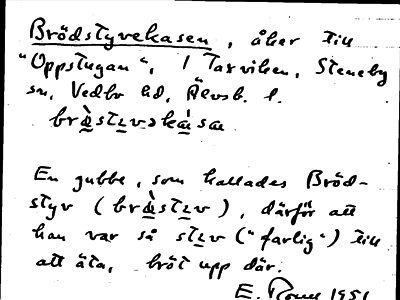 Brödstyvekasen, åker till
"Oppstugan", i Taxviken, Steneby
sn, Vedbo hd, Älvsb. l.
brɷ̀stɩv-ɔkɑ́sɑ
En gubbe, som kallades Bröd-
styv (brɷ̀stɩv), därför att
han var så stɩv ("farlig") till
att äta, bröt upp där.
E. 1951